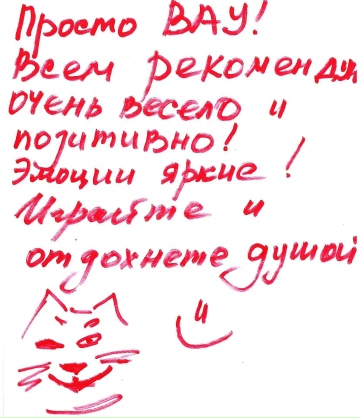 Просто ВАУ!
Всем рекоменду
очень весело и
позитивно!
Эмоции яркие!
Играйте и
отдохнете душой